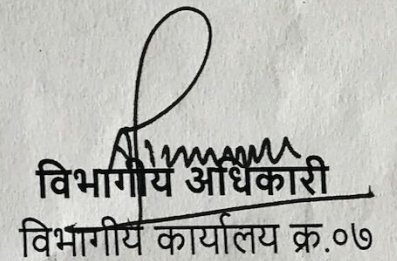 विभागीय अधिकारी
विभागीय कार्यालय क्र.०७